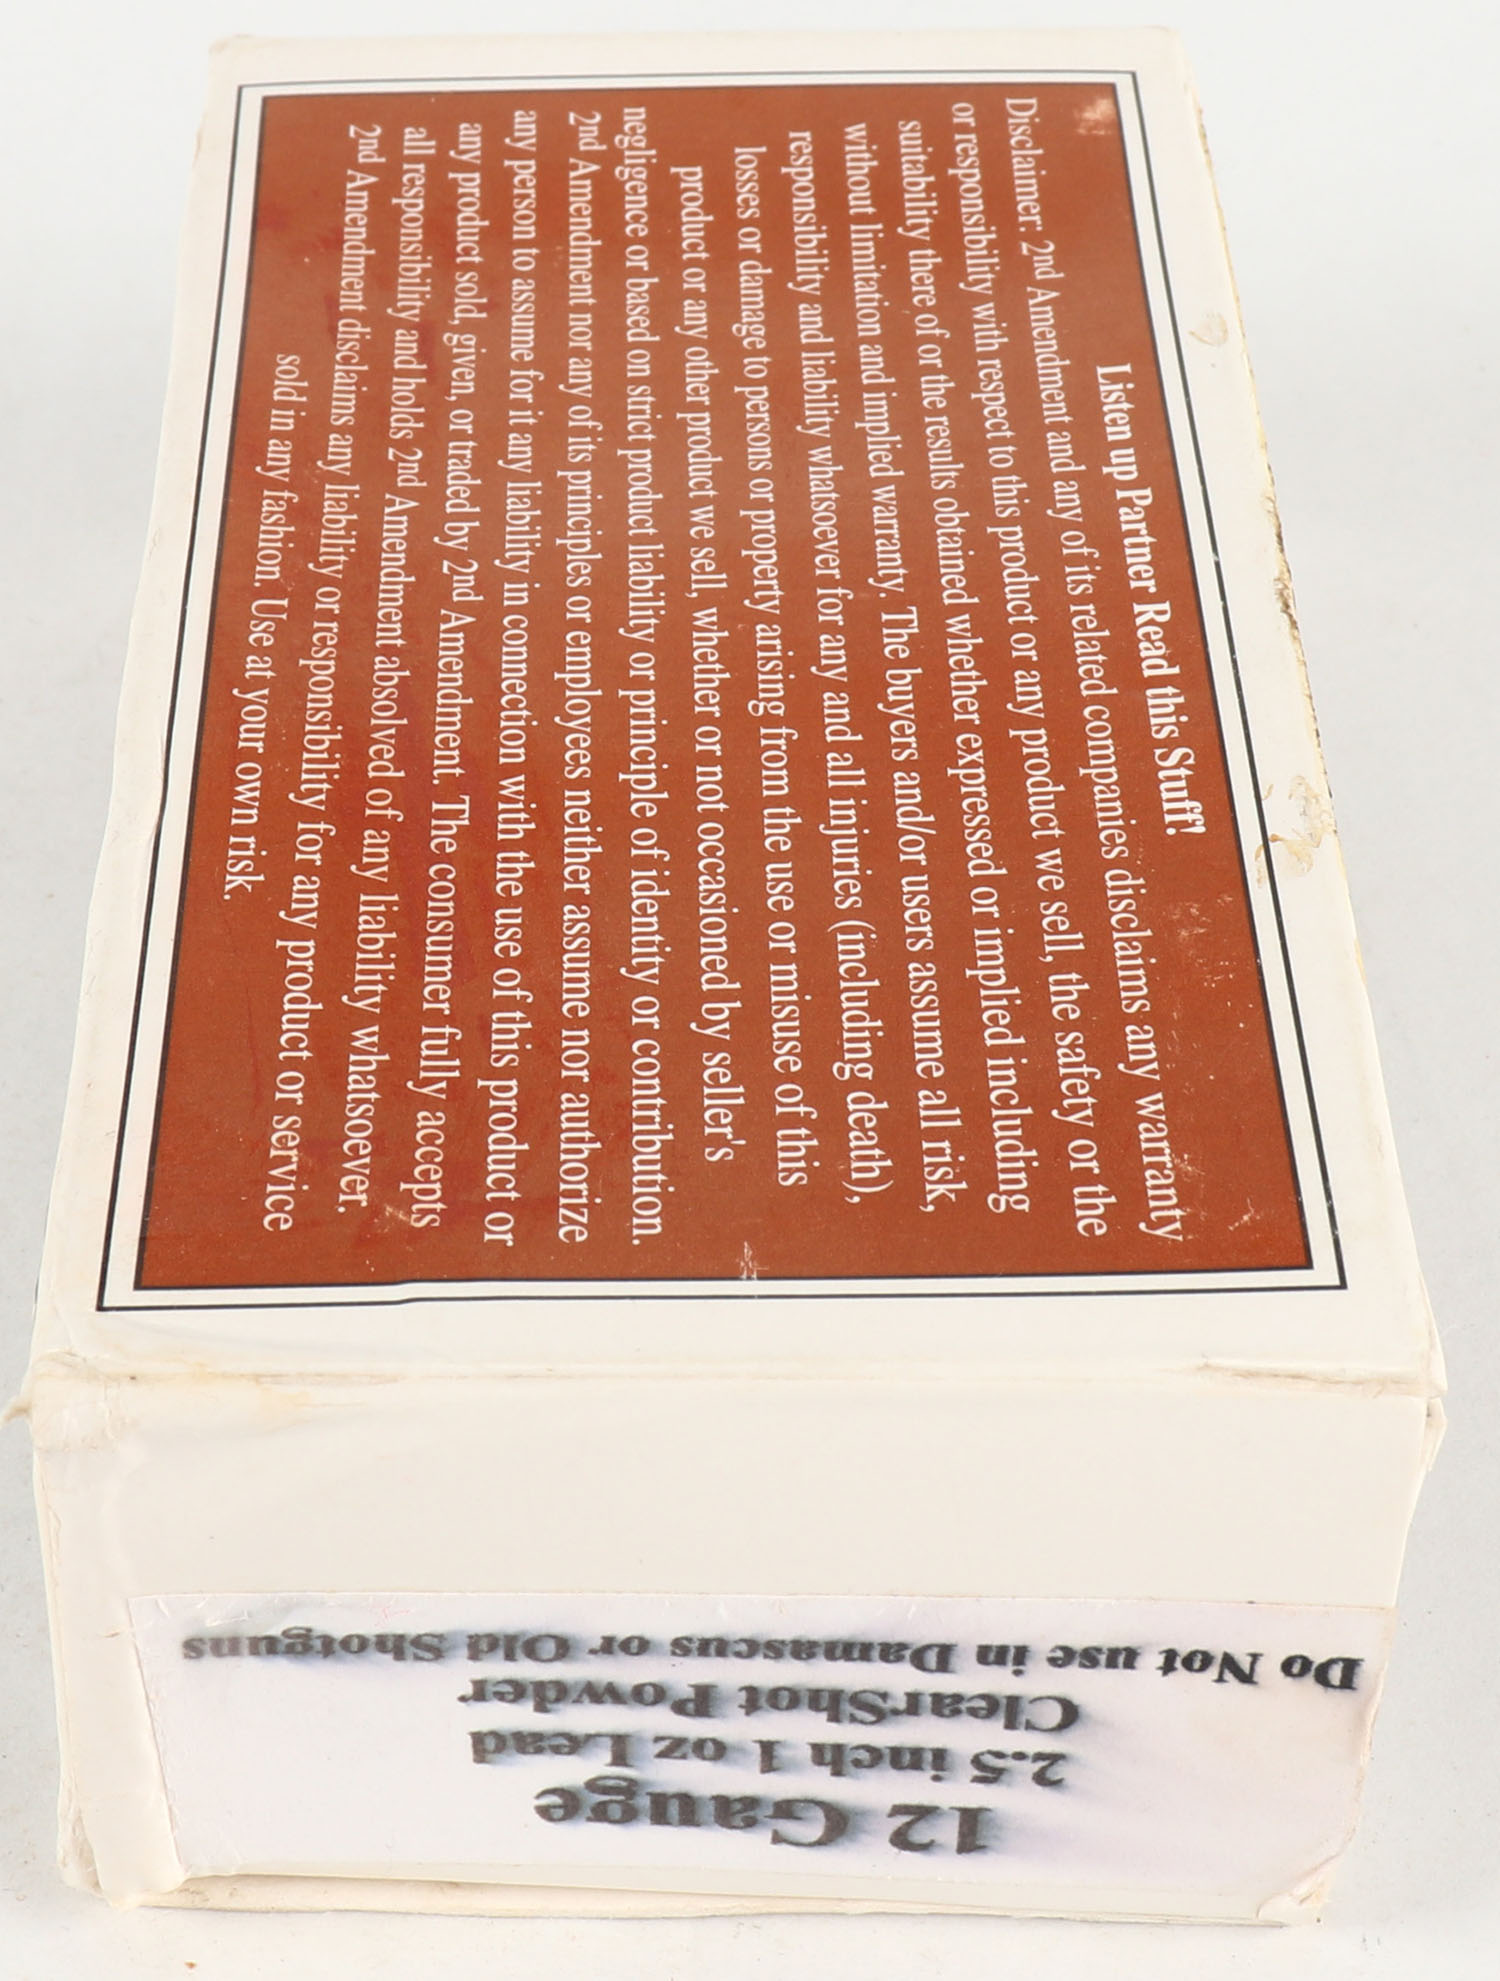 Listen up Partner Read this Stuff!
Disclaimer: 2nd Amendment and any of its related companies disclaims any warranty
or responsibility with respect to this product or any product we sell, the safety or the
suitability there of or the results obtained whether expressed or implied including
without limitation and implied warranty. The buyers and/or users assume all risk,
responsibility and liability whatsoever for any and all injuries (including death),
losses or damage to persons or property arising from the use or misuse of this
product or any other product we sell, whether or not occasioned by seller's
negligence or based on strict product liability or principle of identity or contribution.
2nd Amendment nor any of its principles or employees neither assume nor authorize
any person to assume for it any liability in connection with the use of this product or
any product sold, given, or traded by 2nd Amendment. The consumer fully accepts
all responsibility and holds 2nd Amendment absolved of any liability whatsoever.
2nd Amendment disclaims any liability or responsibility for any product or service
sold in any fashion. Use at your own risk.
12 Gauge
2.5 inch 1 oz Lead
ClearShot Powder
Do Not use in Damascus or Old Shotguns